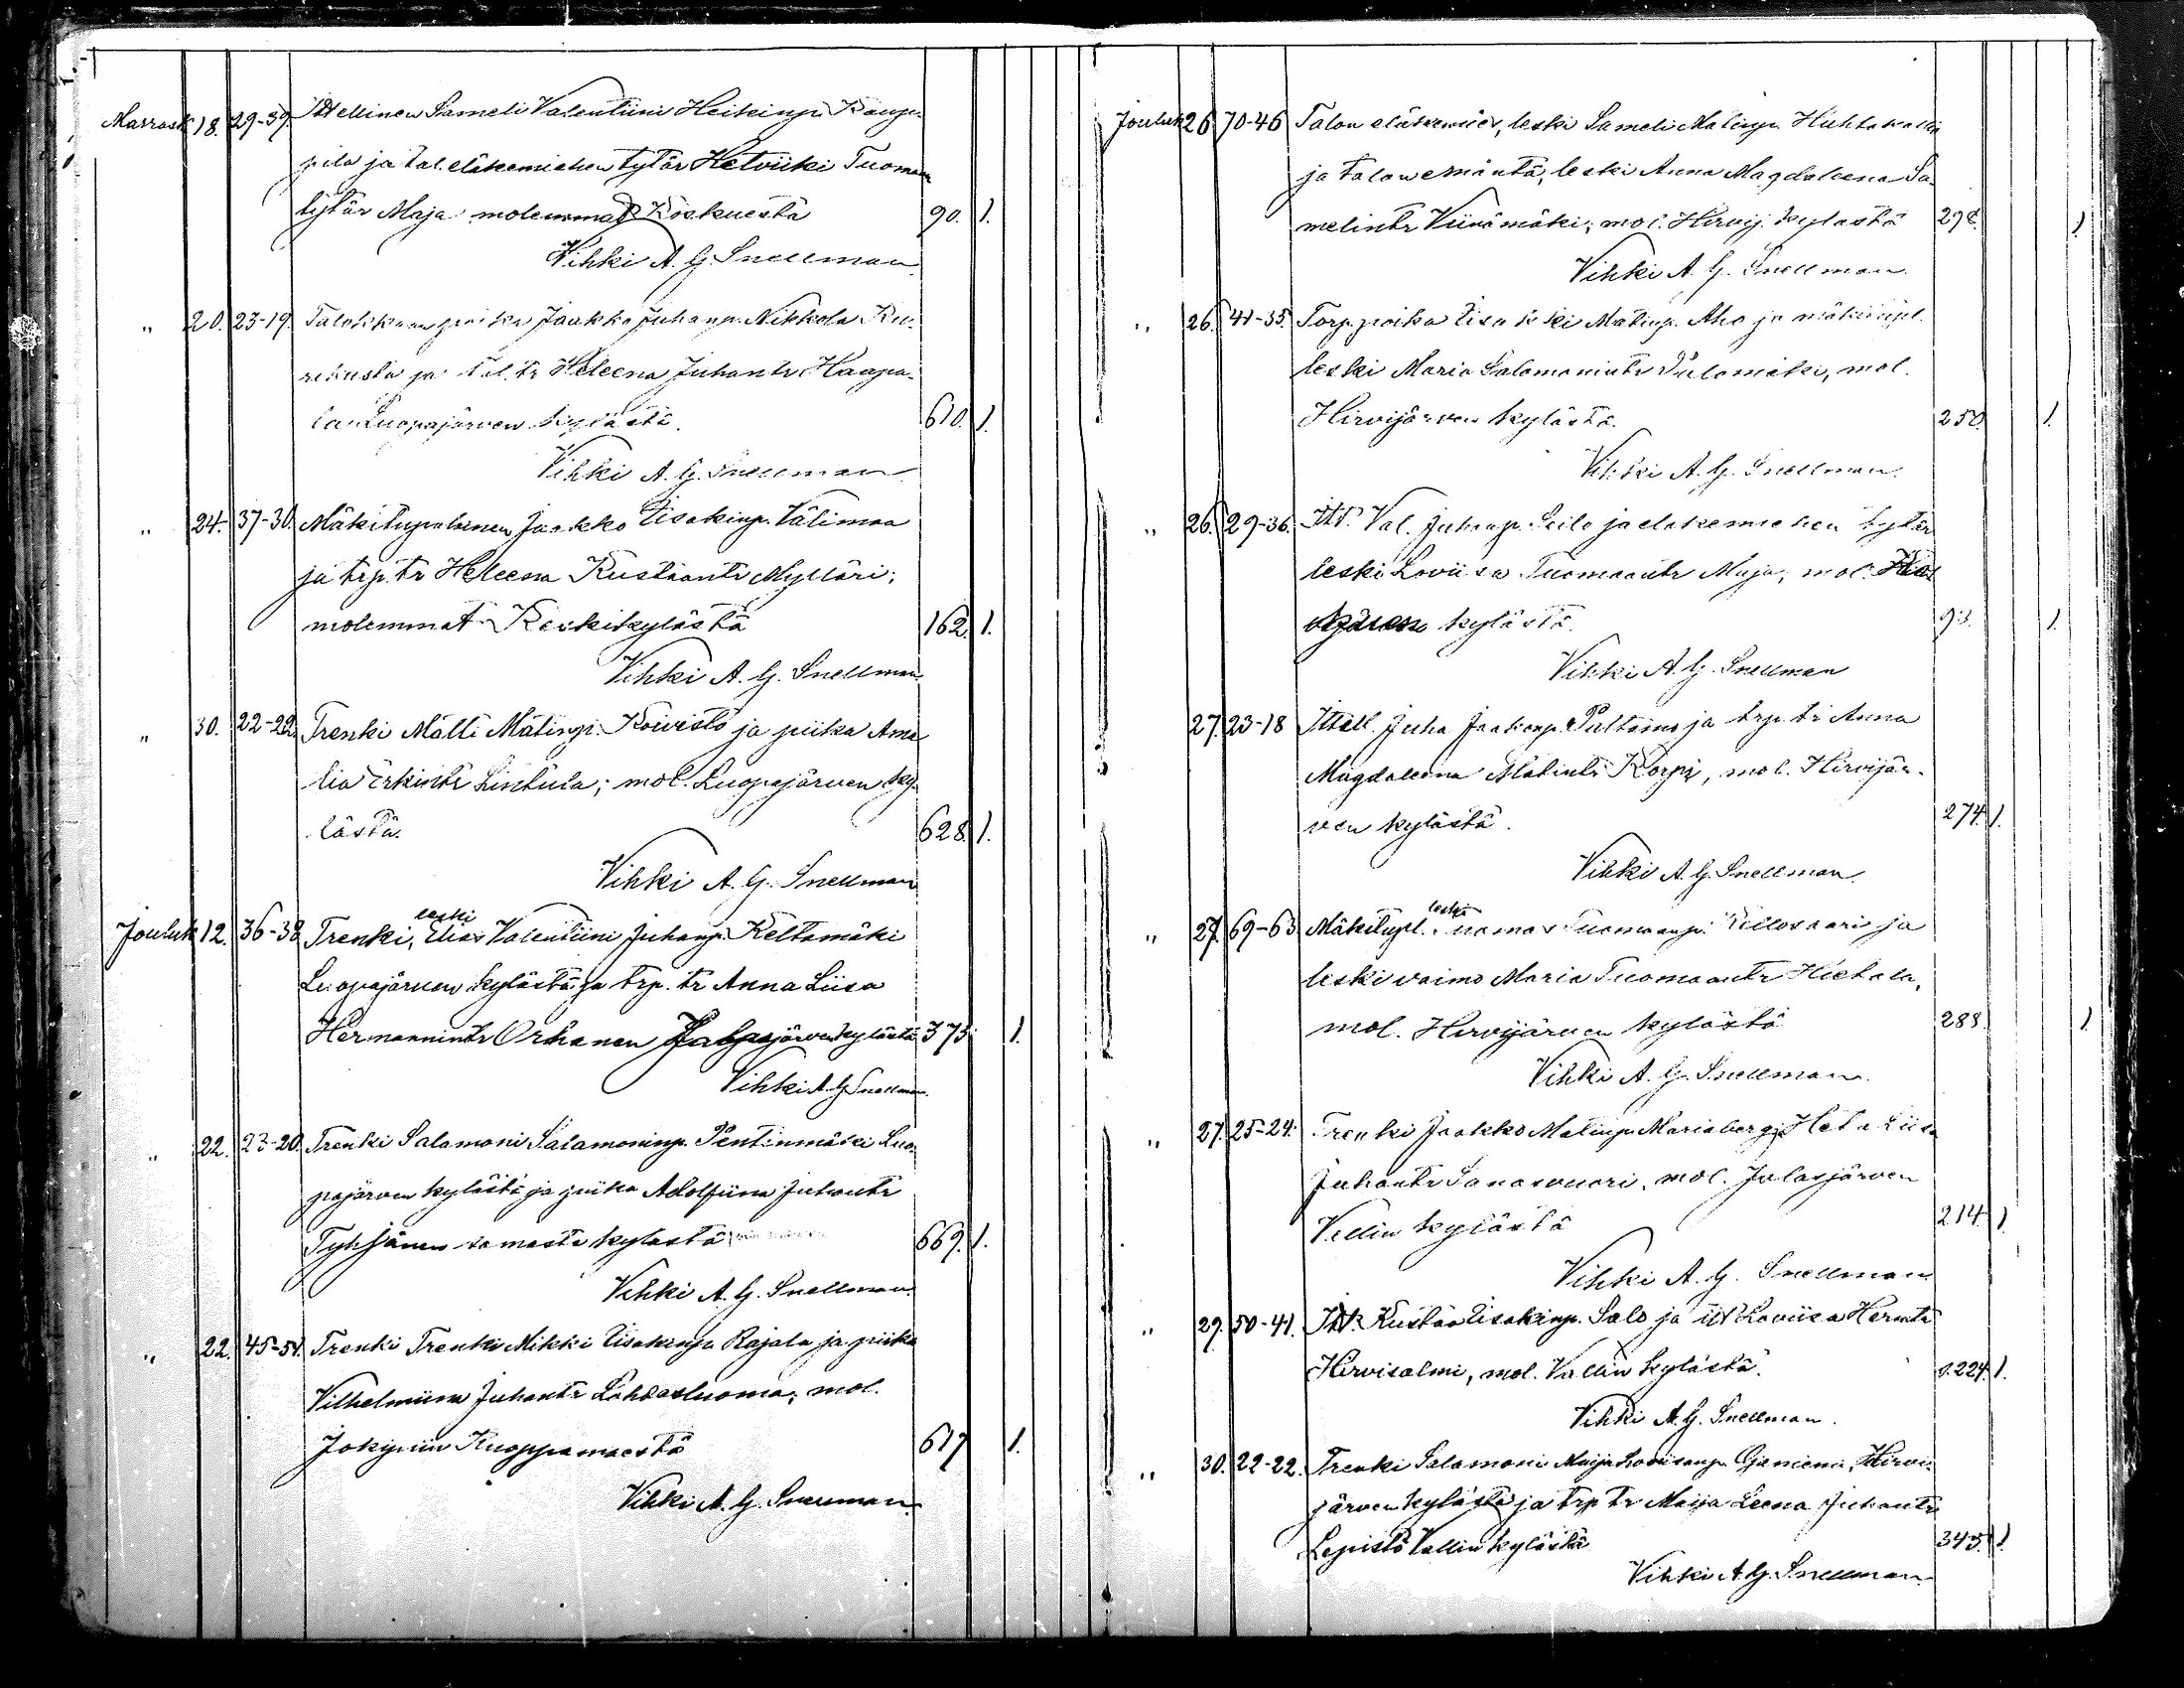 Marrask 18. 29-39. Ittellinen Sameli Valentiini Heikinp.
pila ja tal. eläkemiehen tytär Hetviiki Tuomaan
tytär Maja molemmat Koskuesta 90. 1.
Vihki A. G. Snellman
" 20. 23-19. Talokkaan poika Jaakko Juhanp. Nikkola Ku-
rikasta ja tal. tr Heleena Juhantr Haapa-
la Luopajärven kylästä. 610. 1.
Vihki A. G. Snellman
" 24. 37-30. Mäkitupalainen Jaakko Iisakinp. Välimaa
ja trp. tr Heleena Kustaantr Mylläri;
molemmat Keskikylästä 162. 1.
Vihki A. G. Snellman
" 30. 22-22. Trenki Matti Matinp. Koivisto ja piika Ama-
lia Erkintr Lintula; mol. Luopajärven ky-
lästä. 628. 1.
Vihki A. G. Snellman
leski
Jouluk 12. 36-38. Trenki, Elias Valentiini Juhanp. Keltamäki
Luopajärven kylästä ja trp. tr Anna Liisa
Hermannintr Orhanen Jalasjärven kylästä 373. 1.
Vihki A. G. Snellman.
" 22. 23-20. Trenki Salamoni Salamoninp. Pentinmäki Luo-
pajärven kylästä ja piika Adolfiina Juhantr
Tyhjänen samasta kylästä 669. 1.
Vihki A. G. Snellman
" 22. 45-54. Trenki Trenki Mikki Iisakinp. Rajala ja piika
Vilhelmiina Juhantr Lahdasluoma; mol.
Jokipiin Kuoppamaesta 617 1.
Vihki A. G. Snellman.
Jouluk 26 70-46 Talon eläkemies, leski Sameli Matinp. Huhtakallio
ja talon emäntä, leski Anna Magdaleena Sa-
melintr Viinamäki; mol. Hirvij. kylästä 298. 1
Vihki A. G. Snellman.
" 26. 41-35. Torp. poika Iisakki Matinp. Aho ja mäkitupl.
leski Maria Salomonintr Pulamäki, mol.
Hirvijärven kylästä. 250. 1.
Vihki A. G. Snellman.
" 26. 29-36. Itt. Val. Juhanp. Seilo ja eläkemiehen tytär
leski Loviisa Tuomaantr Maja, mol.
kylästä. 93. 1.
Vihki A. G. Snellman
27. 23-18 Ittell. Juha Jaakonp. Paltamo ja trp. tr Anna
Magdaleena Matintr Korpi, mol. Hirvijär-
ven kylästä. 274. 1.
Vihki A. G. Snellman.
leski
" 27. 69-63 Mäkitupl. Tuomas Tuomaanp. Kellosaari ja
leski vaimo Maria Tuomaantr Hietala,
mol. Hirvijärven kylästä 288. 1
Vihki A. G. Snellman.
" 27. 25-24. Trenki Jaakko Matinp. Mariaberg ja Heta Liisa
Juhantr Sanasvuori, mol. Jalasjärven
Vallin kylästä 214 1
Vihki A. G. Snellman
" 29. 50-41. Itt. Kustaa Iisakinp. Salo ja itt. Loviisa Hermtr
Hirvisalmi, mol. Vallin kylästä. s. 224. 1.
Vihki A. G. Snellman.
" 30. 22-22. Trenki Salamoni Maija Loviisanp. Ojaniemi, Hirvi-
järven kylästä ja trp tr Maija Leena Juhantr
Lepistö Vallin kylästä 345. 1.
Vihki A. G. Snellman.